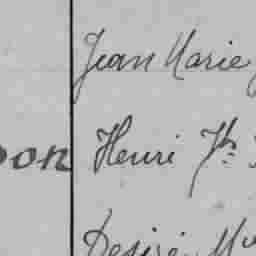 Jean Marie
on Henri Jh
Désiré